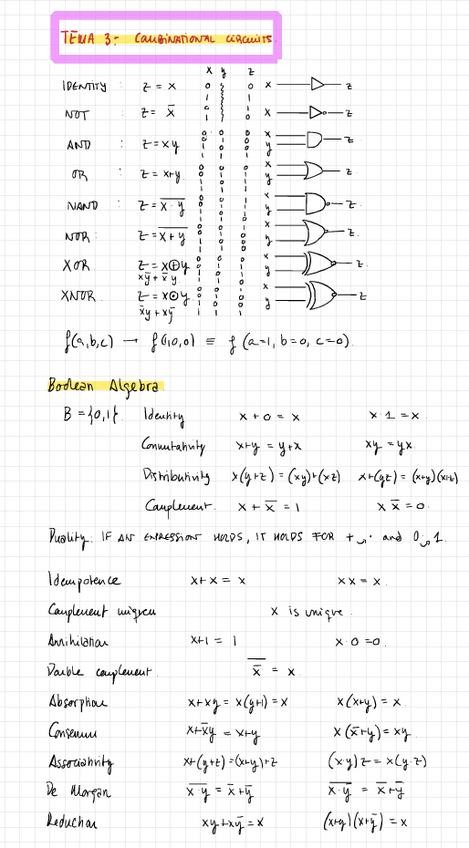 TEMA 3:- COMBINATIONAL CIRCUITS
x y z
IDENTITY : z = x x z
NOT : z = x̅ x z
AND : z = xy x y z
OR : z = x+y x y z
NAND : z = \overline{x·y} x y z
NOR : z = \overline{x+y} x y z
XOR z = x⊕y x y z
xy̅ + x̅y
XNOR z = x⊙y x y z
f(a,b,c) → f(1,0,0) ≡ f(a=1, b=0, c=0).
Boolean Algebra
B = {0,1}. Identity x + 0 = x x·1 = x
Commutativity x+y = y+x xy = yx
Distributivity x(y+z) = (xy)+(xz) x+(yz) = (x+y)(x+z)
Complement. x + x̅ = 1 x x̅ = 0.
Duality: IF AN EXPRESSION HOLDS, IT HOLDS FOR + ⇄ · and 0 ⇄ 1.
Idempotence x+x = x xx = x.
Complement x is unique.
Annihilation x+1 = 1 x·0 =0.
Double complement. \overline{x̅} = x
Absorption x+xy = x(y+1) = x x(x+y) = x.
Consensus x+x̅y = x+y x(x̅+y) = xy
Associativity x+(y+z) = (x+y)+z (xy)z = x(y·z)
De Morgan \overline{x·y} = x̅+y̅ \overline{x·y} = x̅+y̅
Reduction xy+xy̅ = x (x+y)(x+y̅) = x